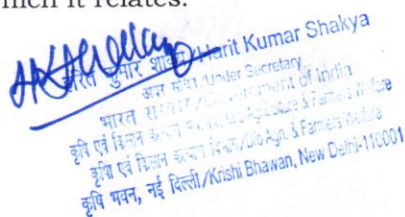 which it relates.
हरित कुमार शाक्य/Harit Kumar Shakya
अवर सचिव/Under Secretary
भारत सरकार/Government of India
कृषि एवं किसान कल्याण मंत्रालय/M/o Agriculture & Farmers Welfare
कृषि एवं किसान कल्याण विभाग/D/o Agri. & Farmers Welfare
कृषि भवन, नई दिल्ली/Krishi Bhawan, New Delhi-110001